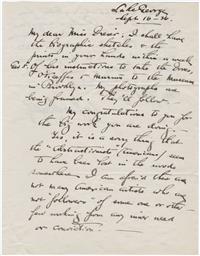 Lake George
Sept. 16 - 26.
My dear Miss Dreier: I shall have
the biographic sketches & the
prints, in your hands within a week.
Of has instructions to take the Doves,
O'Keeffes & Marins to the Museum
in Brooklyn. My photographs are
being framed. They'll follow.
My congratulations to you for
the big work you are doing. —
Yes it is a sorry thing that
the "Abstractionists" (American) seem
to have been lost in the woods
somewhere. I am afraid there are
not many American artists who are
not "followers" of some one or other
few working from any inner need
or conviction. —